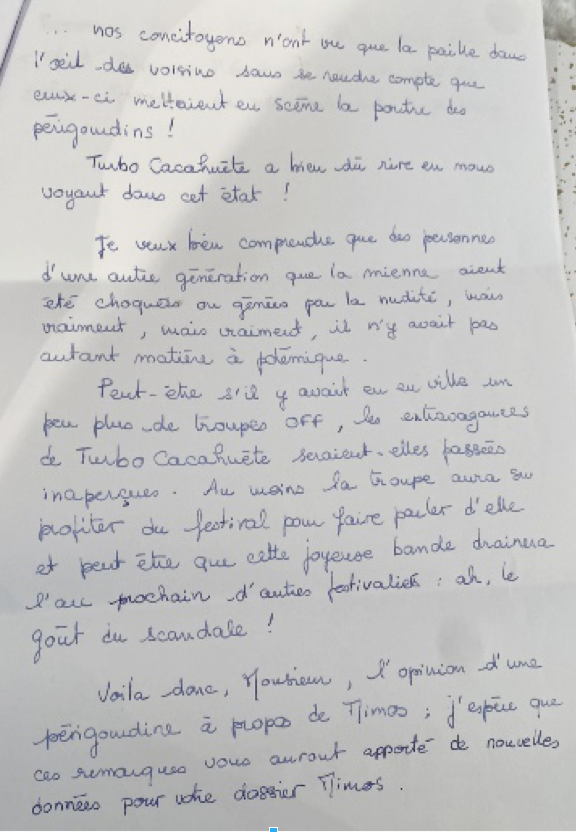 ... nos concitoyens n'ont vu que la paille dans
l'œil des voisins sans se rendre compte que
ceux-ci mettaient en scène la poutre des
périgourdins !
Turbo Cacahuète a bien dû rire en nous
voyant dans cet état !
Je veux bien comprendre que des personnes
d'une autre génération que la mienne aient
été choquées ou gênées par la nudité, mais
vraiment, mais vraiment, il n'y avait pas
autant matière à polémique.
Peut-être s'il y avait eu en ville un
peu plus de troupes OFF, les extravagances
de Turbo Cacahuète seraient-elles passées
inaperçues. Au moins la troupe aura su
profiter du festival pour faire parler d'elle
et peut être que cette joyeuse bande drainera
l'an prochain d'autres festivaliers : ah, le
goût du scandale !
Voilà donc, Monsieur, l'opinion d'une
périgourdine à propos de Mimos ; j'espère que
ces remarques vous auront apporté de nouvelles
données pour votre dossier Mimos.